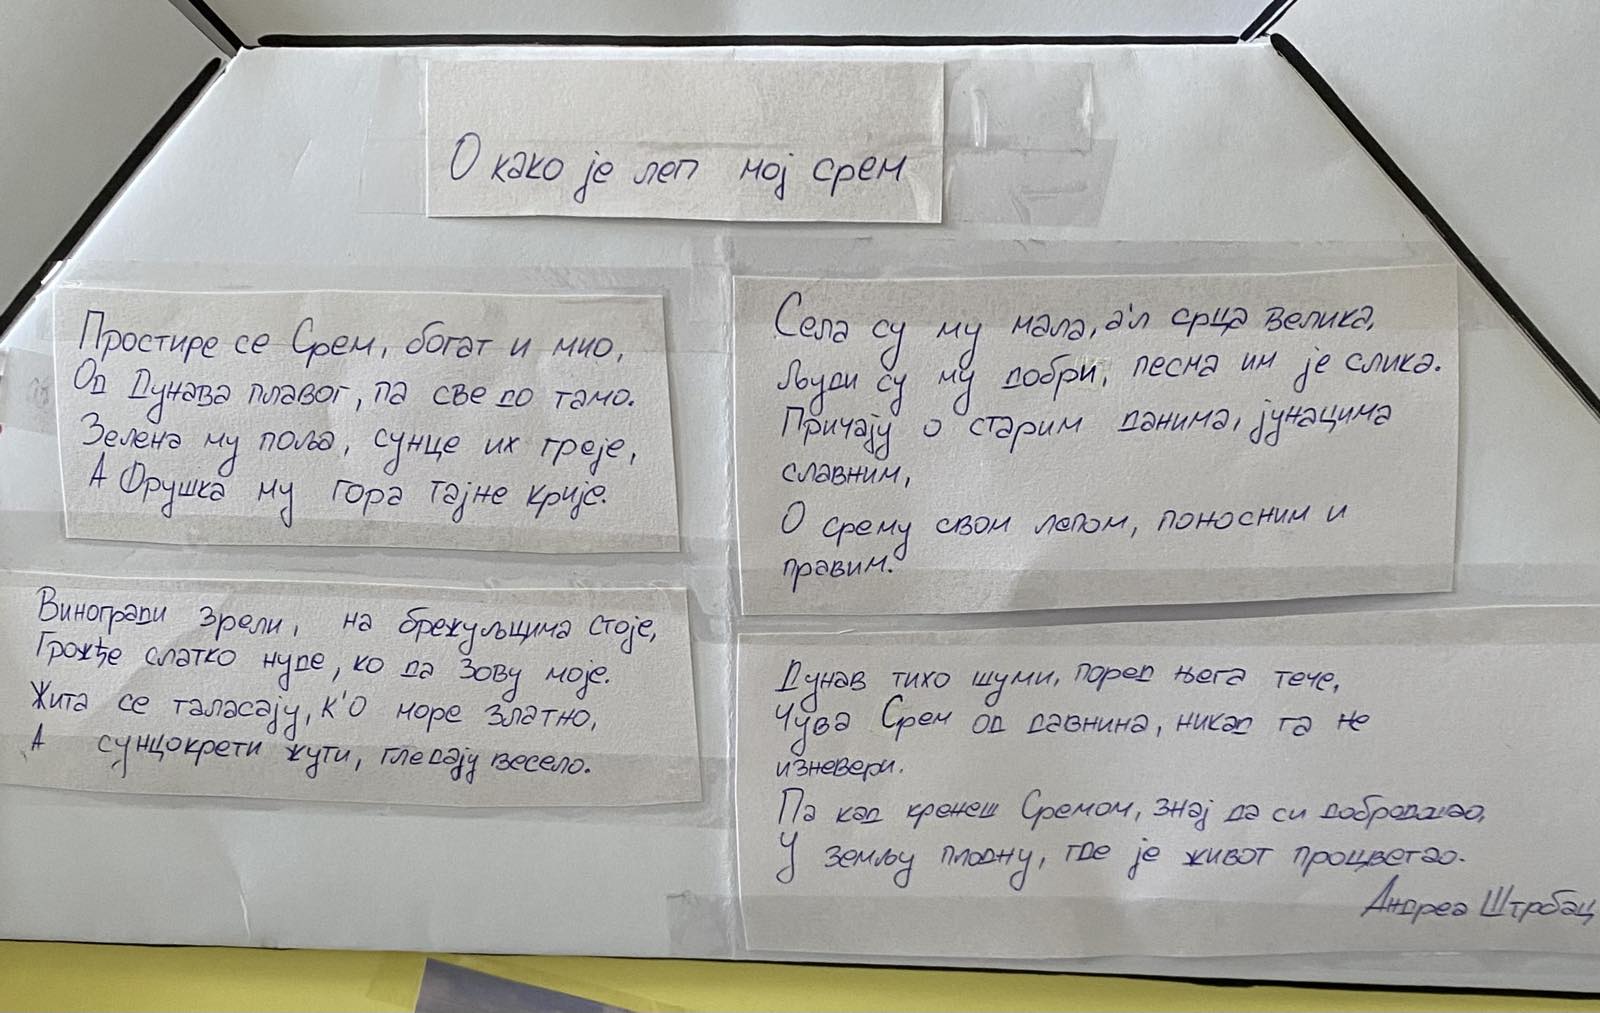 О како је леп мој срем
Простире се Срем, богат и мио,
Од Дунава плавог, па све до тамо.
Зелена му поља, сунце их греје,
А Фрушка му гора тајне крије.
Виногради зрели, на брежуљцима стоје,
Грожђе слатко нуде, ко да зову моје.
Жита се таласају, к'о море златно,
А сунцокрети жути, гледају весело.
Села су му мала, а'л срца велика,
Људи су му добри, песма им је слика.
Причају о старим данима, јунацима
славним,
О срему свом лепом, поносним и
правим.
Дунав тихо шуми, поред њега тече,
Чува Срем од давнина, никад га не
изневери.
Па кад кренеш Сремом, знај да си добродошао,
У земљу плодну, где је живот процветао.
Андреа Штрбац